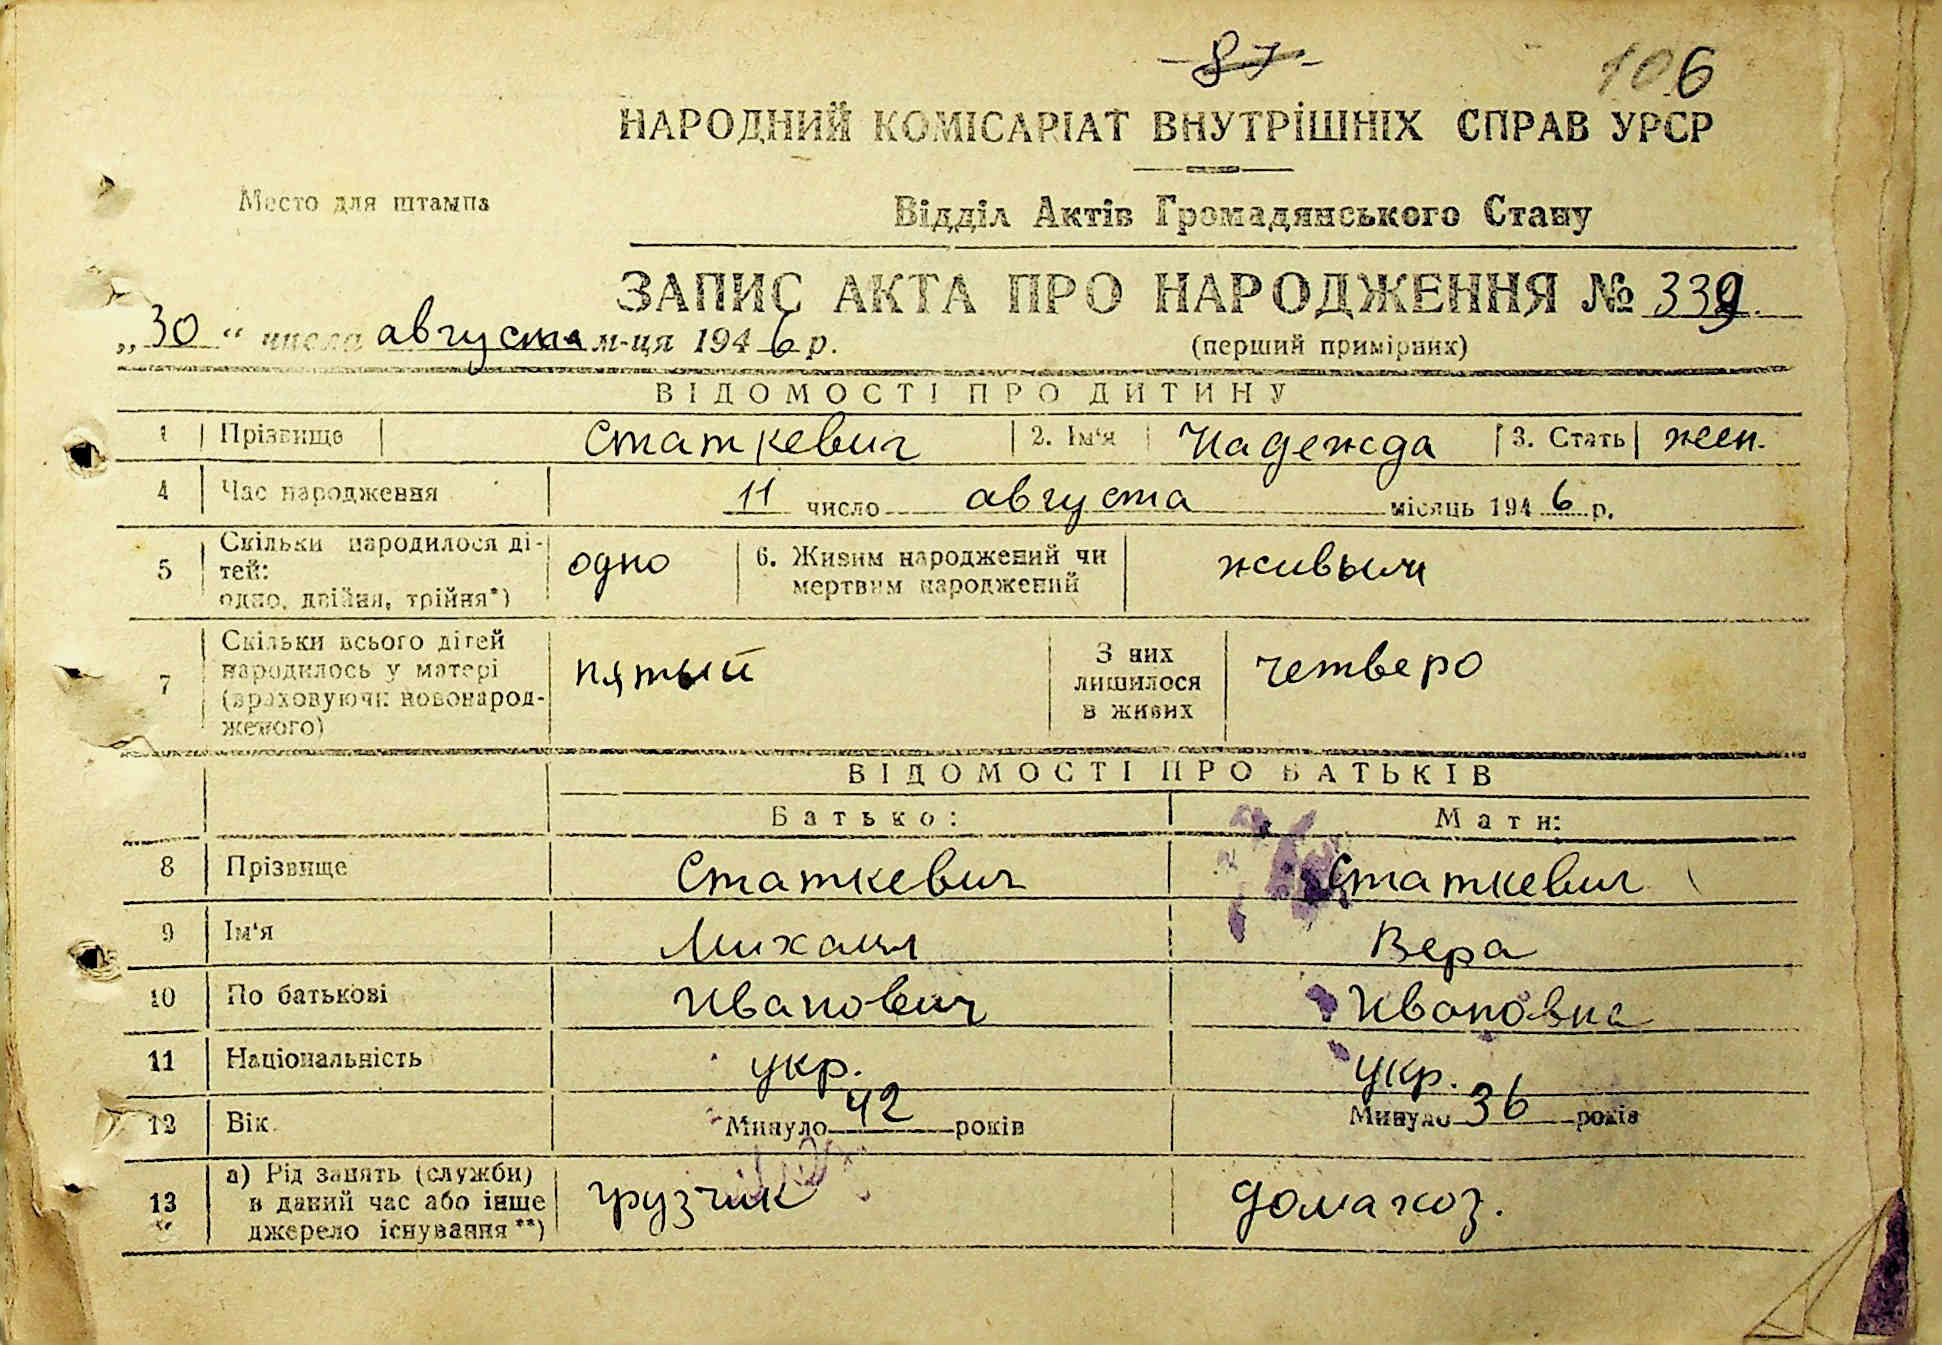 - 87 -
106
НАРОДНИЙ КОМІСАРІАТ ВНУТРІШНІХ СПРАВ УРСР
Место для штампа
Відділ Актів Громадянського Стану
ЗАПИС АКТА ПРО НАРОДЖЕННЯ № 339.
„30“ числа августа м-ця 1946 р.
(перший примірник)
ВІДОМОСТІ ПРО ДИТИНУ
1 Прізвище Статкевич 2. Ім'я Надежда 3. Стать жен.
4 Час народження 11 число августа місяць 1946 р.
5 Скільки народилося ді-
тей:
одно, двійня, трійня*)
одно
6. Живим народжений чи
мертвим народжений
живым
7 Скільки всього дітей
народилось у матері
(враховуючи новонарод-
женого)
пятый
З них
лишилося
в живих
четверо
ВІДОМОСТІ ПРО БАТЬКІВ
Батько: Мати:
8 Прізвище Статкевич Статкевич
9 Ім'я Михаил Вера
10 По батькові Иванович Ивановна
11 Національність укр. укр.
12 Вік. Минуло 42 років Минуло 36 років
13 а) Рід занять (служби)
в даний час або інше
джерело існування**)
грузчик домахоз.